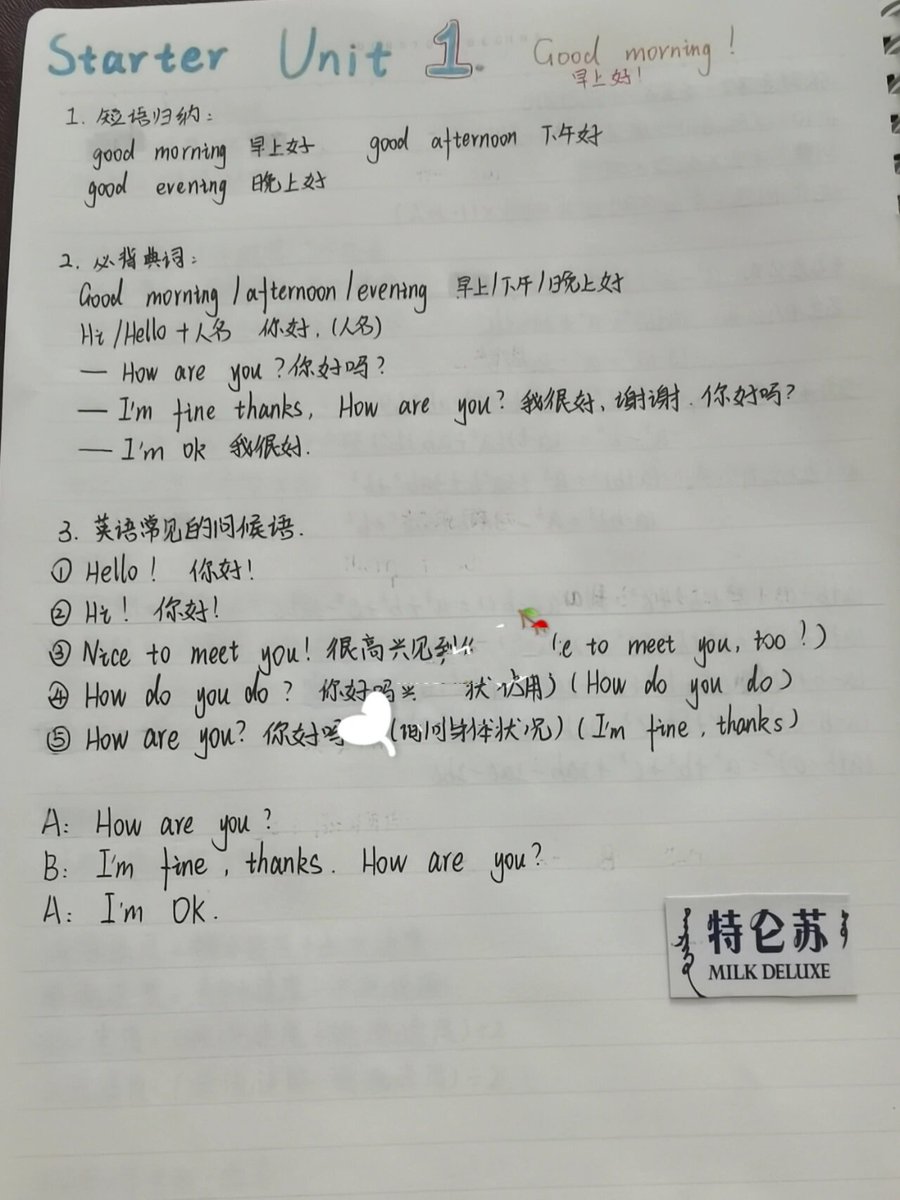 Starter Unit 1. Good morning!
早上好!
1. 短语归纳:
good morning 早上好 good afternoon 下午好
good evening 晚上好
2. 必背典词:
Good morning /afternoon /evening 早上/下午/晚上好
Hi /Hello +人名 你好,(人名)
— How are you ?你好吗?
— I'm fine thanks, How are you? 我很好、谢谢. 你好吗?
— I'm ok 我很好.
3. 英语常见的问候语.
① Hello! 你好!
② Hi! 你好!
③ Nice to meet you! 很高兴见到 to meet you, too!)
④ How do you do? 你好吗 状 用) (How do you do)
⑤ How are you? 你好吗 (询问身体状况) (I'm fine, thanks)
A: How are you?
B: I'm fine, thanks. How are you?
A: I'm OK.
特仑苏
MILK DELUXE